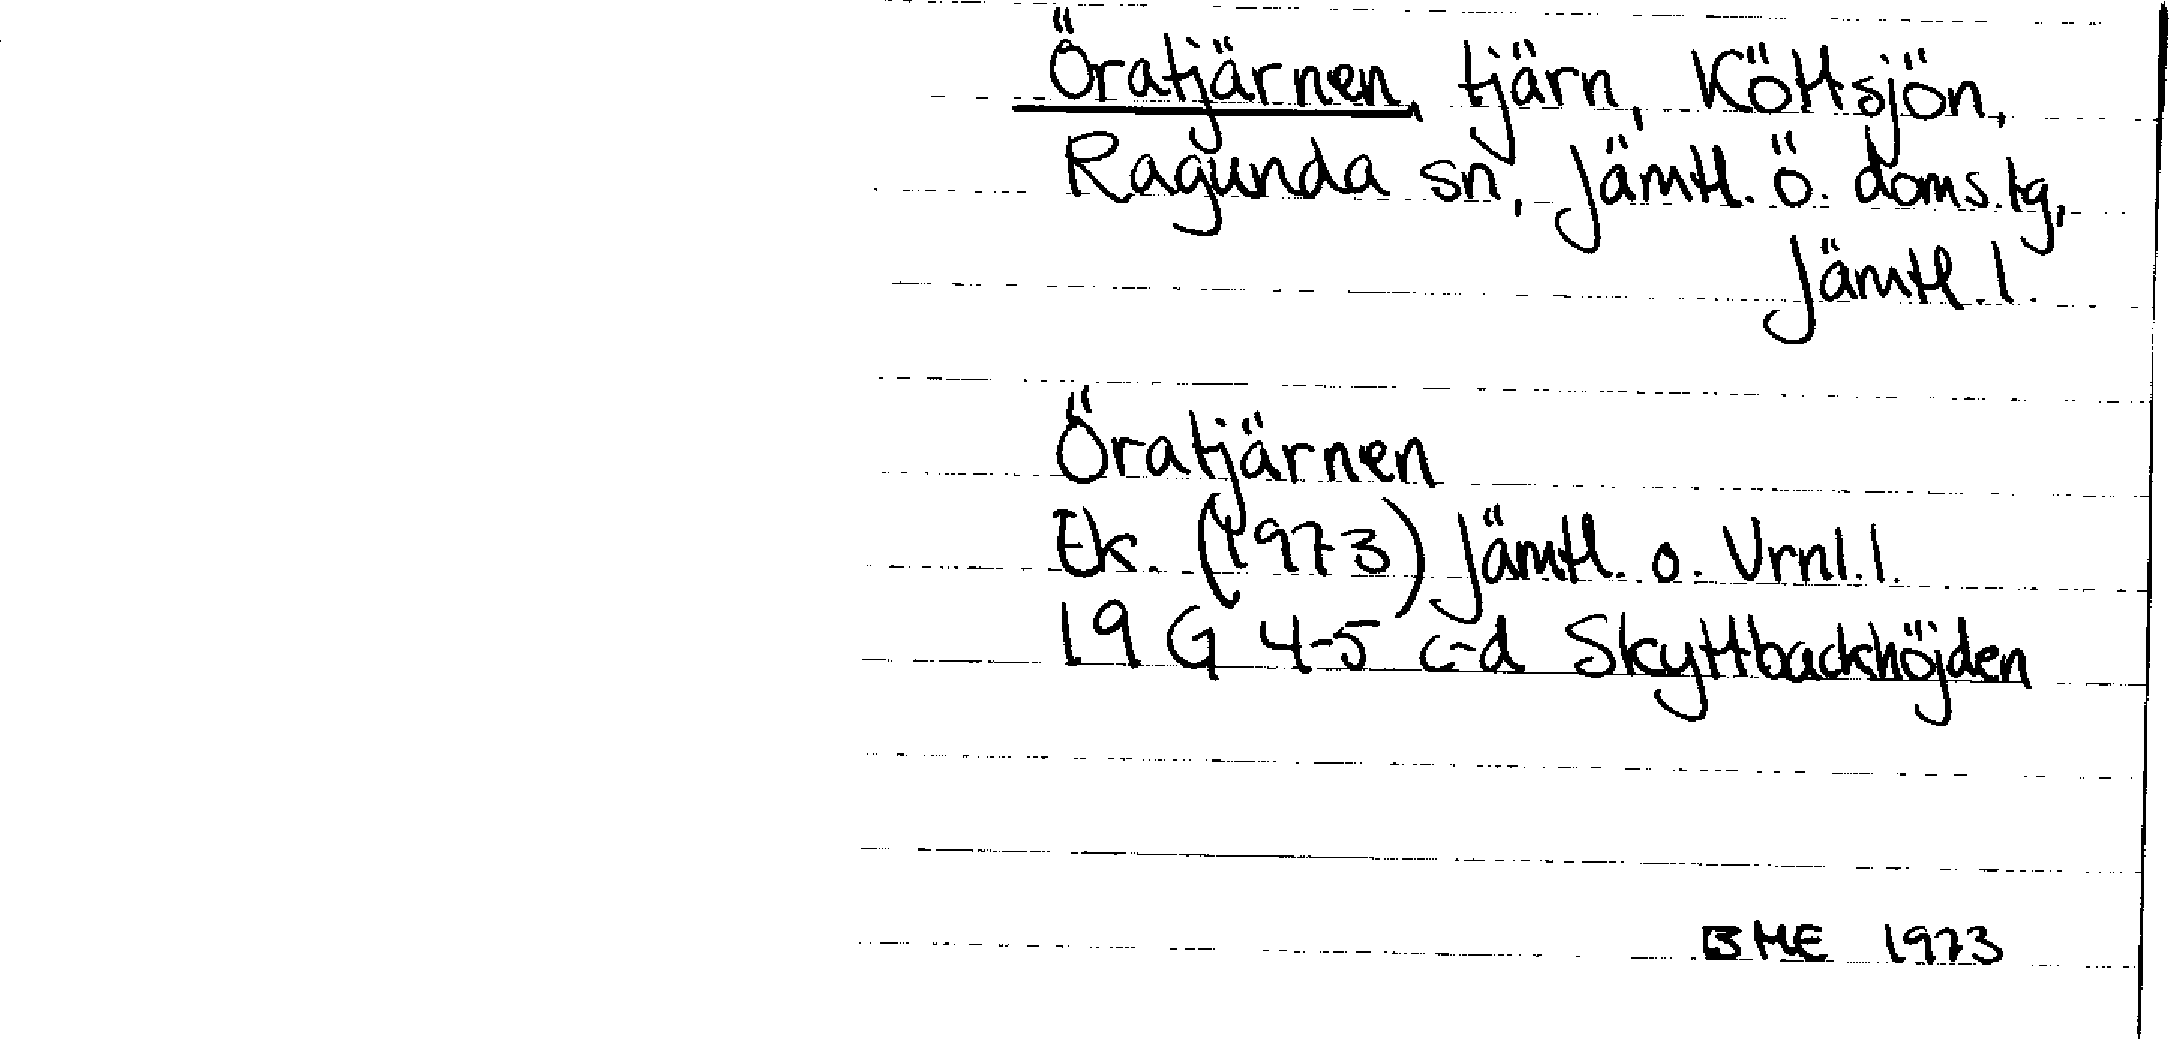 Öratjärnen, tjärn, Köttsjön,
Ragunda sn, Jämtl. ö. doms.tg,
Jämtl. l.
Öratjärnen
Ek. (1973) Jämtl. o. Vrnl. l.
19 G 4-5 c-d Skyttbackhöjden
BME 1973